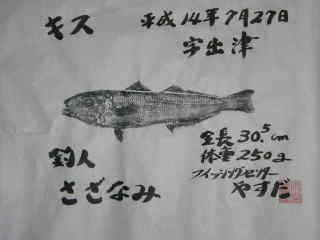 キス
平成14年7月27日
宇出津
全長30.5cm
体重250g
フィッシングセンター
やすだ
釣人
さざなみ